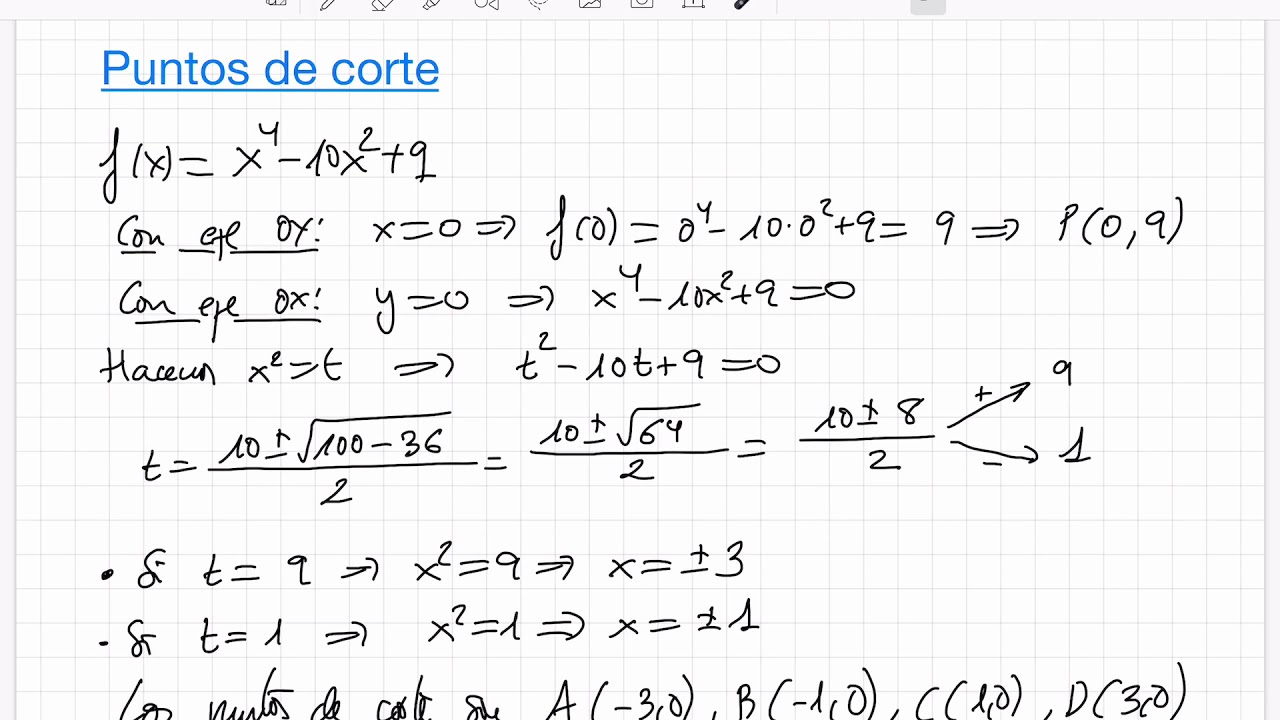 Puntos de corte
f(x) = x⁴ - 10x² + 9
Con eje OY: x = 0 ⇒ f(0) = 0⁴ - 10·0² + 9 = 9 ⇒ P(0, 9)
Con eje OX: y = 0 ⇒ x⁴ - 10x² + 9 = 0
Hacemos x² = t ⇒ t² - 10t + 9 = 0
t = (10 ± √(100 - 36))/2 = (10 ± √64)/2 = (10 ± 8)/2 + → 9 - → 1
• Si t = 9 ⇒ x² = 9 ⇒ x = ± 3
• Si t = 1 ⇒ x² = 1 ⇒ x = ± 1
Los puntos de corte son A(-3,0), B(-1,0), C(1,0), D(3,0)